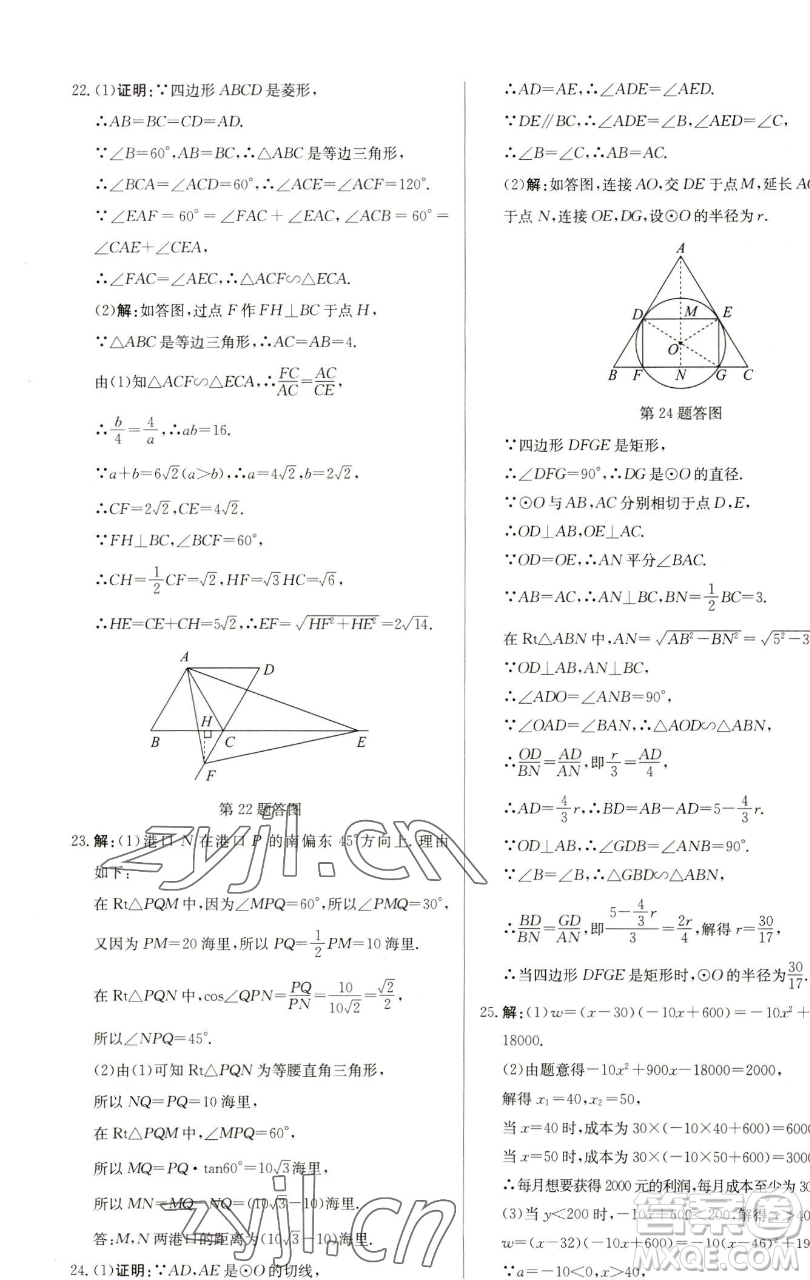 22.(1)证明:∵四边形ABCD是菱形,
∴AB=BC=CD=AD.
∵∠B=60°,AB=BC,∴△ABC是等边三角形,
∴∠BCA=∠ACD=60°,∴∠ACE=∠ACF=120°.
∵∠EAF=60°=∠FAC+∠EAC,∠ACB=60°=
∠CAE+∠CEA,
∴∠FAC=∠AEC,∴△ACF∽△ECA.
(2)解:如答图,过点F作FH⊥BC于点H,
∵△ABC是等边三角形,∴AC=AB=4.
由(1)知△ACF∽△ECA,∴FC/AC=AC/CE,
∴b/4=4/a,∴ab=16.
∵a+b=6√2(a>b),∴a=4√2,b=2√2.
∴CF=2√2,CE=4√2.
∵FH⊥BC,∠BCF=60°,
∴CH=1/2CF=√2,HF=√3HC=√6,
∴HE=CE+CH=5√2,∴EF=√(HF²+HE²)=2√14.
A D
B H C E
F
第22题答图
23.解:(1)港口N在港口P的南偏东45°方向上.理由
如下:
在Rt△PQM中,因为∠MPQ=60°,所以∠PMQ=30°,
又因为PM=20海里,所以PQ=1/2PM=10海里.
在Rt△PQN中,cos∠QPN=PQ/PN=10/10√2=√2/2,
所以∠NPQ=45°.
(2)由(1)可知Rt△PQN为等腰直角三角形,
所以NQ=PQ=10海里,
在Rt△PQM中,∠MPQ=60°,
所以MQ=PQ·tan60°=10√3海里,
所以MN=MQ-NQ=(10√3-10)海里.
答:M,N两港口的距离为(10√3-10)海里.
24.(1)证明:∵AD,AE是⊙O的切线,
∴AD=AE,∴∠ADE=∠AED.
∵DE∥BC,∴∠ADE=∠B,∠AED=∠C,
∴∠B=∠C,∴AB=AC.
(2)解:如答图,连接AO,交DE于点M,延长AO
于点N,连接OE,DG,设⊙O的半径为r.
A
D M E
O
B F N G C
第24题答图
∵四边形DFGE是矩形,
∴∠DFG=90°,∴DG是⊙O的直径.
∵⊙O与AB,AC分别相切于点D,E,
∴OD⊥AB,OE⊥AC.
∵OD=OE,∴AN平分∠BAC.
∵AB=AC,∴AN⊥BC,BN=1/2BC=3.
在Rt△ABN中,AN=√(AB²-BN²)=√(5²-3
∵OD⊥AB,AN⊥BC,
∴∠ADO=∠ANB=90°,
∵∠OAD=∠BAN,∴△AOD∽△ABN,
∴OD/BN=AD/AN,即r/3=AD/4,
∴AD=4/3r,∴BD=AB-AD=5-4/3r.
∵OD⊥AB,∴∠GDB=∠ANB=90°.
∵∠B=∠B,∴△GBD∽△ABN,
∴BD/BN=GD/AN,即(5-4/3r)/3=2r/4,解得r=30/17,
∴当四边形DFGE是矩形时,⊙O的半径为30/17.
25.解:(1)w=(x-30)(-10x+600)=-10x²+
18000.
(2)由题意得-10x²+900x-18000=2000,
解得x₁=40,x₂=50,
当x=40时,成本为30×(-10×40+600)=6000
当x=50时,成本为30×(-10×50+600)=3000
∴每月想要获得2000元的利润,每月成本至少为30
(3)当y<200时,-10x+600<200,解得x>40
w=(x-32)(-10x+600)=-10(x-46)²+19
∵a=-10<0,x>40,
zyjl.cn
zyjl.cn
答案圈
MXQE.COM